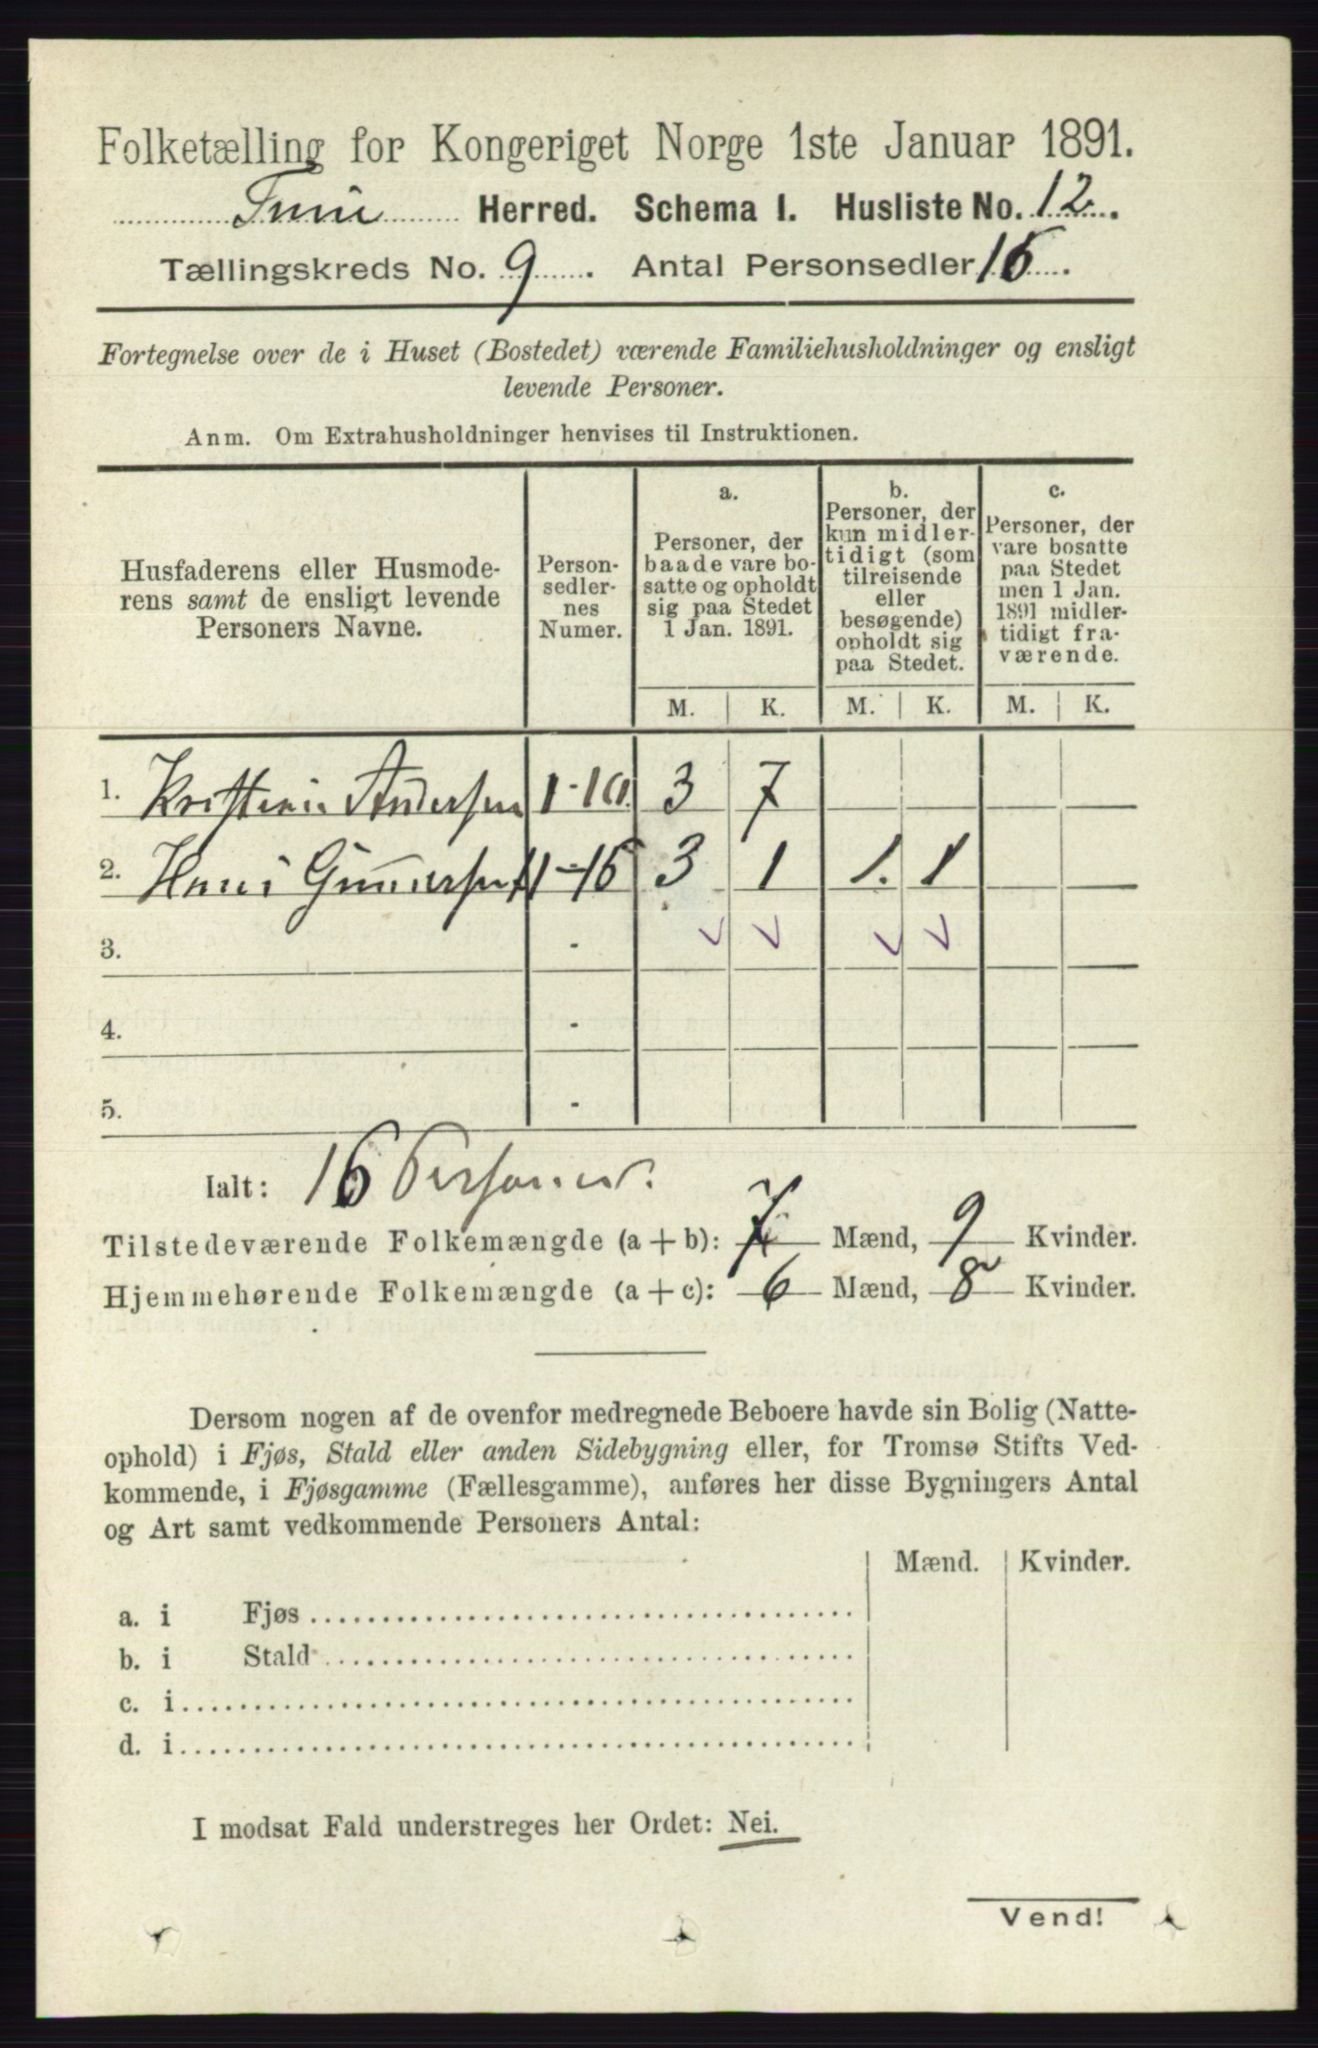 Folketælling for Kongeriget Norge 1ste Januar 1891.
Tune Herred. Schema I. Husliste No. 12.
Tællingskreds No. 9. Antal Personsedler 16.
Fortegnelse over de i Huset (Bostedet) værende Familiehusholdninger og ensligt
levende Personer.
Anm. Om Extrahusholdninger henvises til Instruktionen.
Husfaderens eller Husmode-
rens samt de ensligt levende
Personers Navne.
Person-
sedler-
nes
Numer.
a.
Personer, der
baade vare bo-
satte og opholdt
sig paa Stedet
1 Jan. 1891.
b.
Personer, der
kun midler-
tidigt (som
tilreisende
eller
besøgende)
opholdt sig
paa Stedet.
c.
Personer, der
vare bosatte
paa Stedet
men 1 Jan.
1891 midler-
tidigt fra-
værende.
M. K. M. K. M. K.
1. Andersen 1-10. 3 7
2. Hans Gundersen 11-16 3 1 1. 1
3. -
4. -
5. -
Ialt: 16 Personer.
Tilstedeværende Folkemængde (a + b): 7 Mænd, 9 Kvinder.
Hjemmehørende Folkemængde (a + c): 6 Mænd, 8 Kvinder.
Dersom nogen af de ovenfor medregnede Beboere havde sin Bolig (Natte-
ophold) i Fjøs, Stald eller anden Sidebygning eller, for Tromsø Stifts Ved-
kommende, i Fjøsgamme (Fællesgamme), anføres her disse Bygningers Antal
og Art samt vedkommende Personers Antal:
Mænd. Kvinder.
a. i Fjøs
b. i Stald
c. i
d. i
I modsat Fald understreges her Ordet: Nei.
Vend!